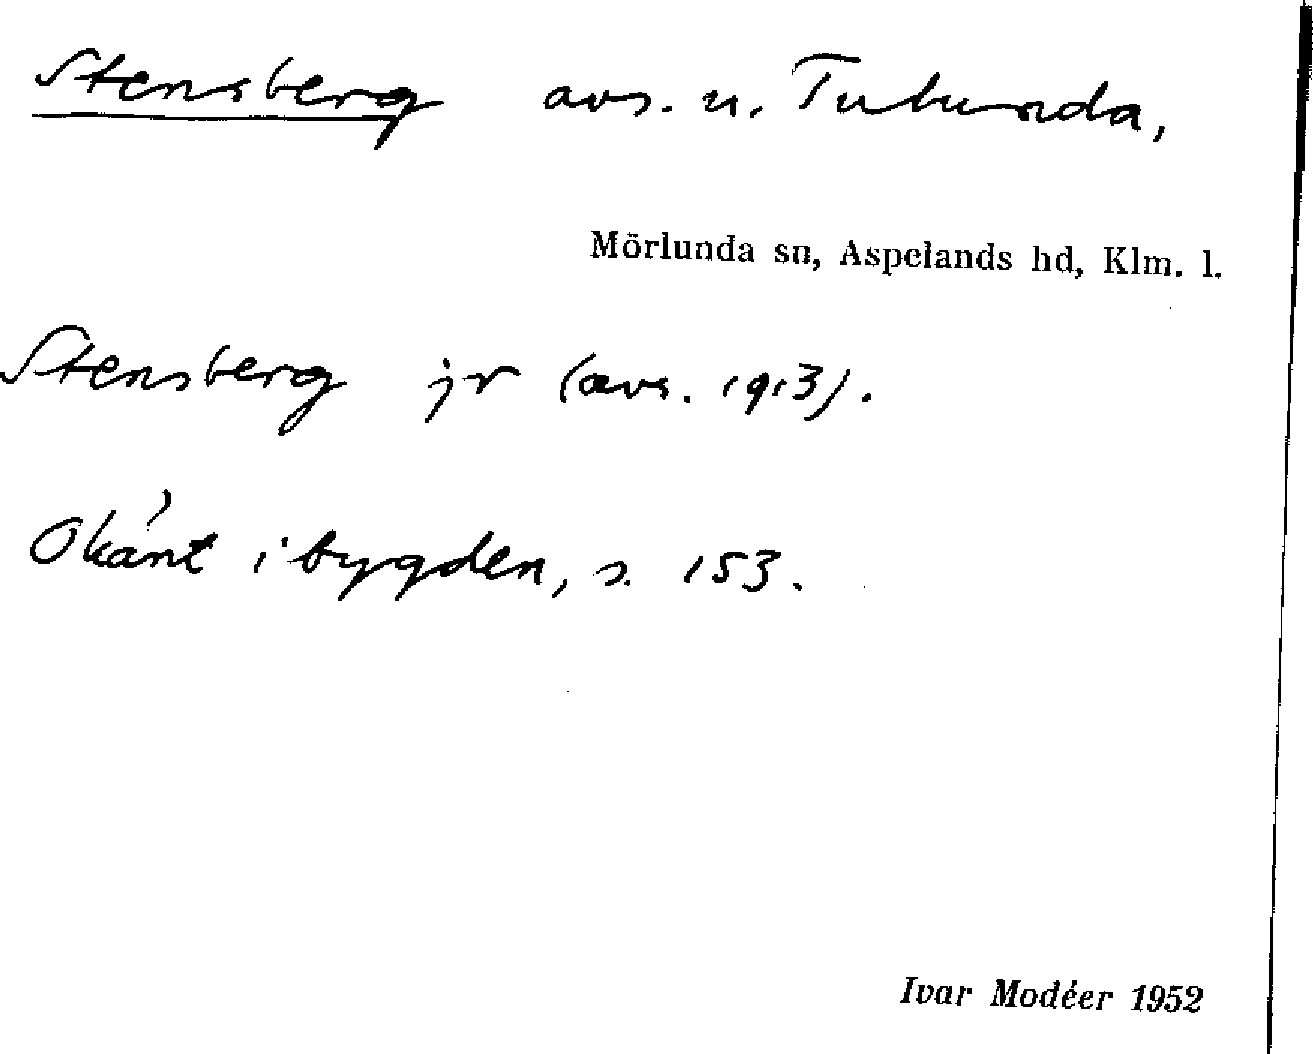 Stensberg avs. u. Tulunda,
Mörlunda sn, Aspelands hd, Klm. l.
Stensberg jr (avs. 1913).
Okänt i bygden, s. 153.
Ivar Modéer 1952